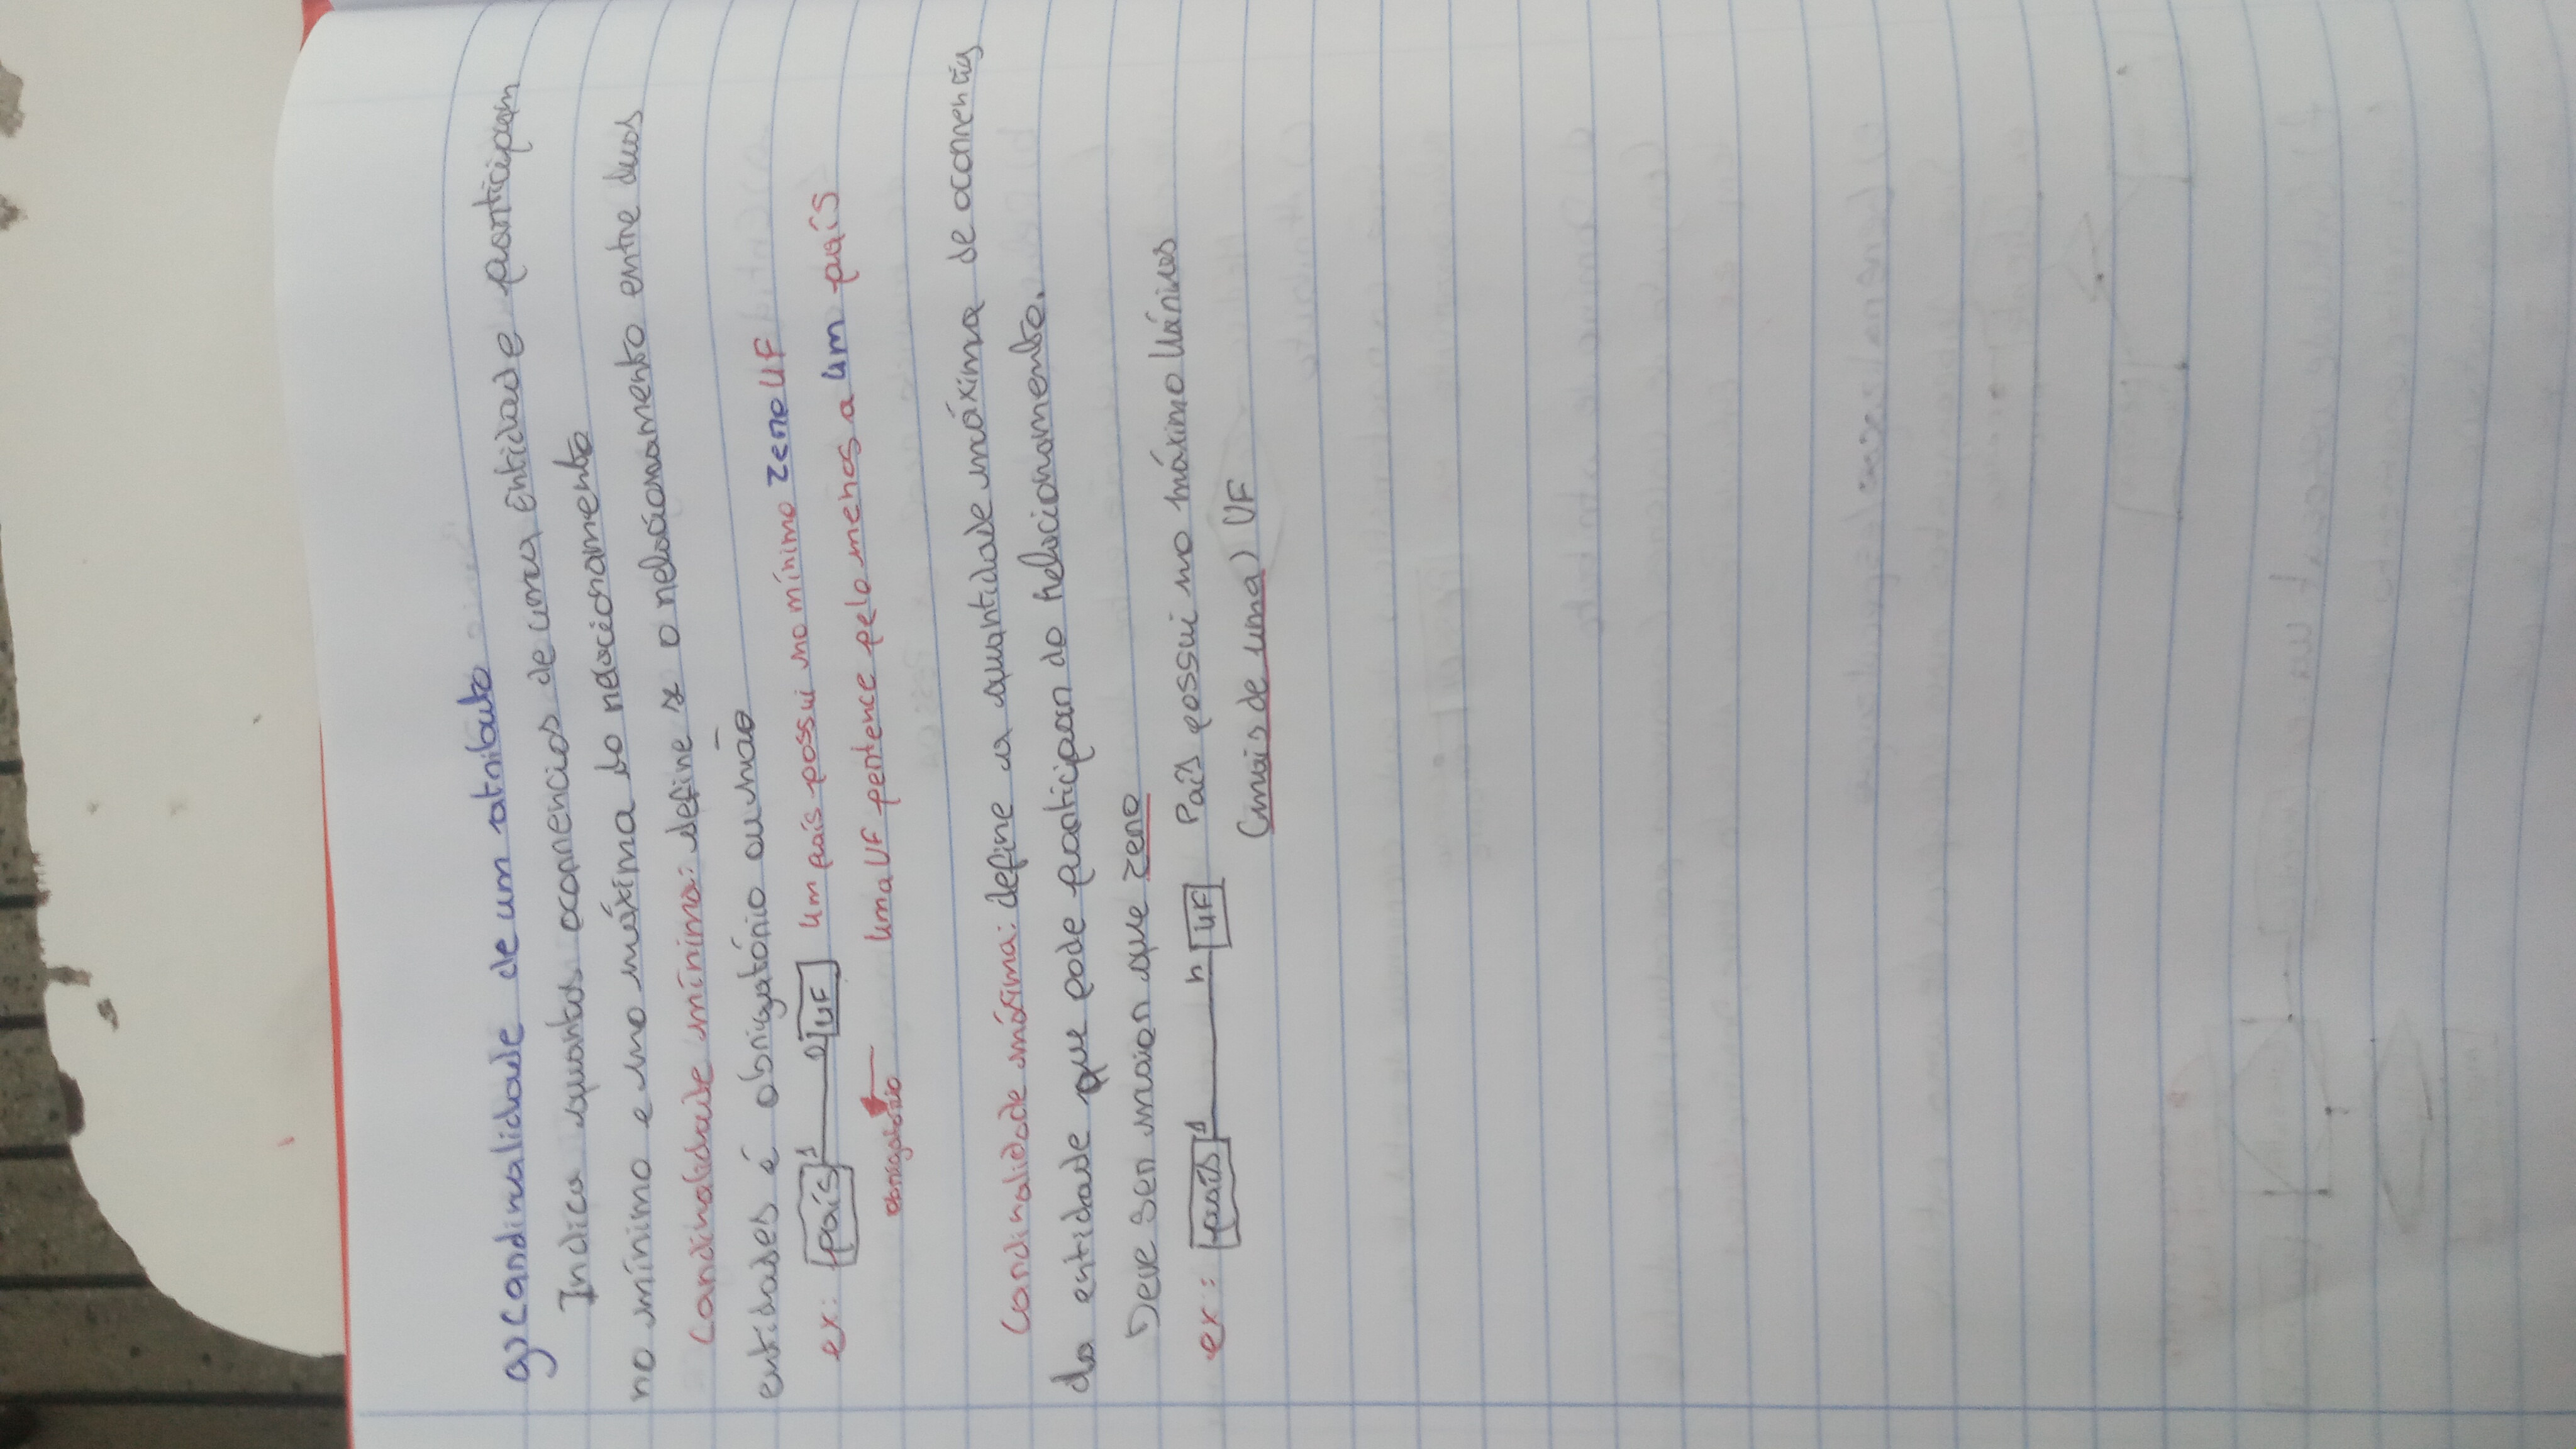 g) cardinalidade de um atributo
Indica quantas ocorrencias de uma entidade participam
no mínimo e no máxima do relacionamento
Cardinalidade mínima: define se o relacionamento entre duas
entidades é obrigatório ou não
ex: país 1 0 UF um país possui no mínimo zero UF
obrigatório uma UF pertence pelo menos a um país
Cardinalidade máxima: define a quantidade máxima de ocorrencias
da entidade que pode participar do relacionamento.
Deve ser maior que zero
ex: país 1 n UF País possui no máximo Várias
(mais de uma) UF